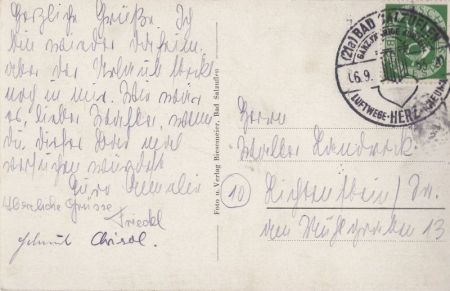 Herzliche Grüße. Ich
bin wieder daheim,
aber der Urlaub steckt
noch in mir. Wie wär
es, lieber Walter, wenn
Du dieses Bad mal
versuchen würdest
Eure Amalie
Herzliche Grüsse
Friedel
Helmut Christl.
Foto u. Verlag Biesemeier, Bad Salzuflen
(21a) BAD SALZUFLEN
6.9.
LUFTWEGE-HERZ
Herrn
Walter Landrock
(10) Lichtenstein/Sa.
am Mühlgraben 13